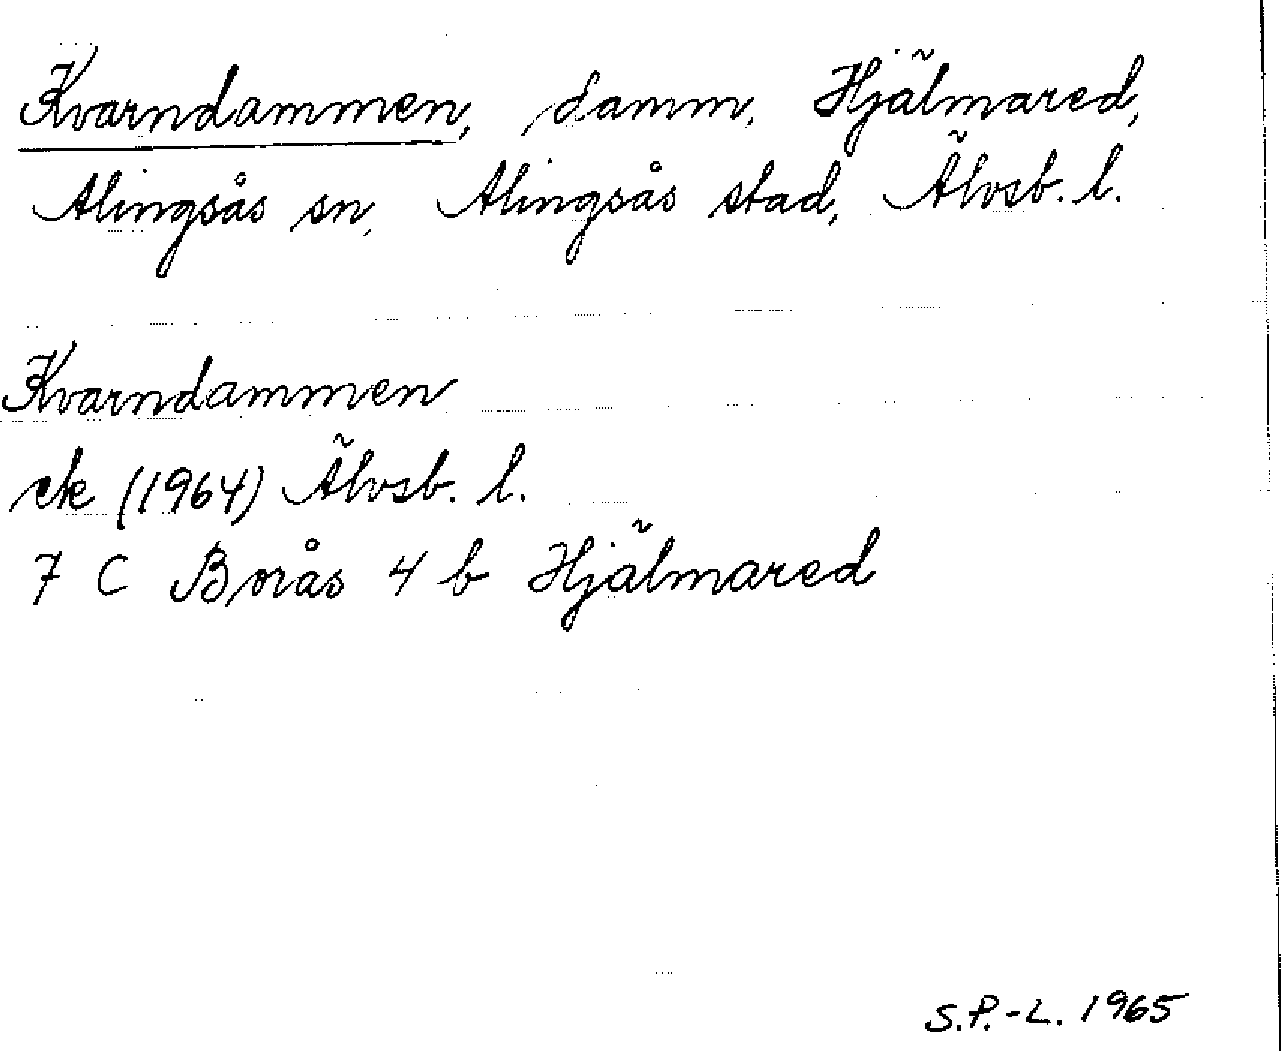 Kvarndammen, damm, Hjälmared,
Alingsås sn, Alingsås stad, Älvsb. l.
Kvarndammen
ek (1964) Älvsb. l.
7 C Borås 4 b Hjälmared
S.P.-L. 1965